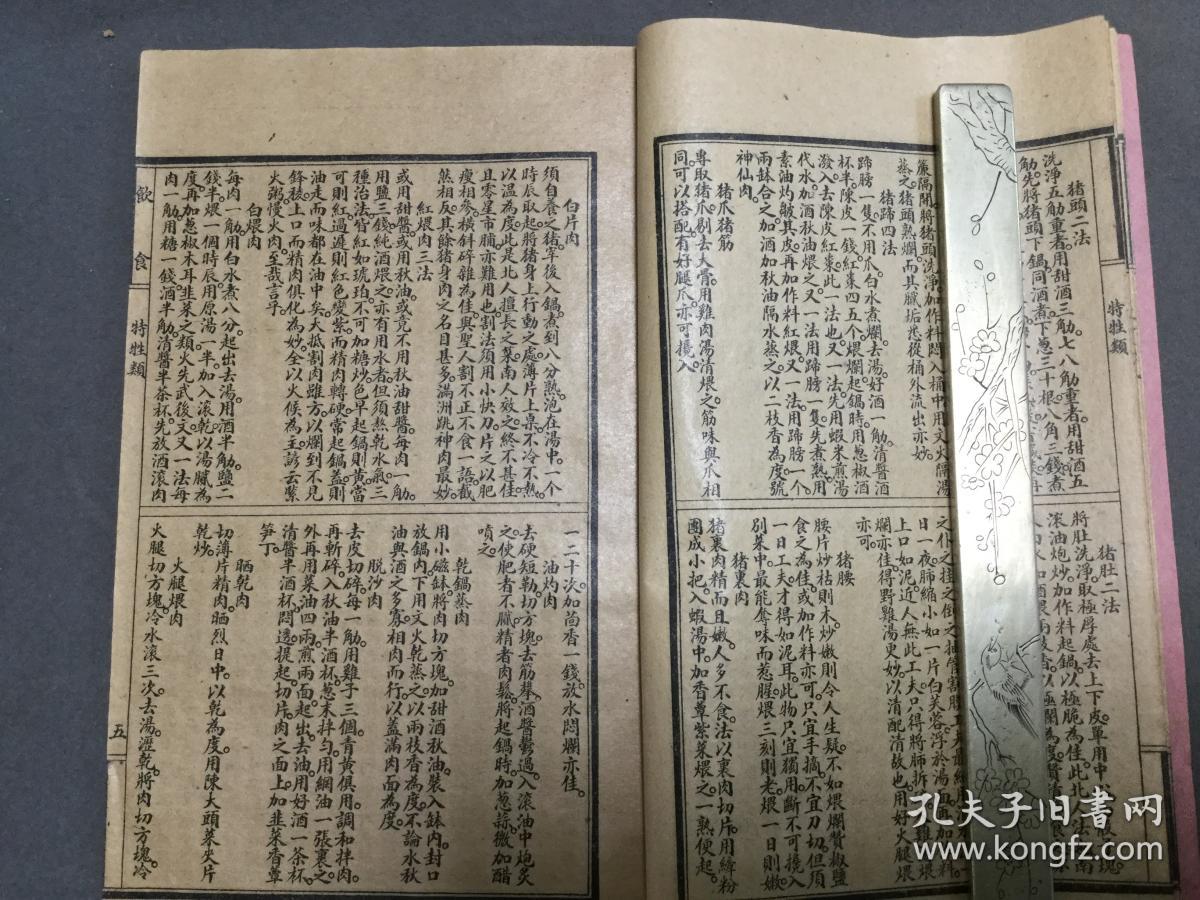 特牲類
猪頭二法
洗淨五觔重者。用甜酒三觔。七八觔重者。用甜酒五
觔。先將猪頭下鍋同酒煮。下葱三十根。八角三錢。煮
簾隔開。將猪頭洗淨。加作料悶入桶中。用文火隔湯
蒸之。猪頭熟爛。而其膩垢悉從桶外流出亦妙。
猪蹄四法
蹄膀一隻。不用爪。白水煮爛。去湯。好酒一觔。清醬酒
杯半。陳皮一錢。紅棗四五个。煨爛。起鍋時。用葱椒酒
潑入。去陳皮紅棗。此一法也。又一法。先用蝦米煎湯
代水。加酒秋油煨之。又一法。用蹄膀一隻。先煮熟。用
素油灼皺其皮。再加作料紅煨。又一法。用蹄膀一个。
兩缽合之。加酒加秋油。隔水蒸之。以二枝香為度。號
神仙肉。
猪爪猪筋
專取猪爪。剔去大骨。用雞肉湯清煨之。筋味與爪相
同。可以搭配。有好腿爪。亦可攙入。
猪肚二法
將肚洗淨。取極厚處。去上下皮。單用中
滾油炮炒。加作料起鍋。以極脆為佳。此北
日一夜。肺縮小如一片白芙蓉。浮於湯
上口如泥。近人無此工夫。只得將肺拆
爛亦佳。得野雞湯更妙。以清配清故也。用好火腿煨
亦可。
猪腰
腰片炒枯則木。炒嫩則令人生疑。不如煨爛。贊椒鹽
食之為佳。或加作料亦可。只宜手摘。不宜刀切。但須
一日工夫。才得如泥耳。此物只宜獨用。斷不可攙入
別菜中。最能奪味而惹腥。煨三刻則老。煨一日則嫩。
猪裏肉
猪裏肉精而且嫩。人多不食。法以裏肉切片。用縴粉
團成小把。入蝦湯中。加香蕈紫菜煨之。一熟便起。
白片肉
須自養之猪。宰後入鍋。煮到八分熟。泡在湯中。一个
時辰取起。將猪身上行動之處。薄片上桌。不冷不熱。
以溫為度。此是北人擅長之菜。南人效之。終不甚佳。
且零星市脯。亦難用也。割法須用小快刀片之。以肥
瘦相參。橫斜碎雜為佳。與聖人割不正不食一語。截
然相反。其餘猪身肉之名目甚多。滿洲跳神肉最妙。
紅煨肉三法
或用甜醬。或用秋油。或竟不用秋油甜醬。每肉一觔。
用鹽三錢。純酒煨之。亦有用水者。但須熬乾水氣。三
種治法皆紅如琥珀。不可加糖炒色。早起鍋則黃。當
可則紅。過遲則紅色變紫。而精肉轉硬。常起鍋蓋則
油走。而味都在油中矣。大抵割肉雖方。以爛到不見
鋒稜。上口而精肉俱化為妙。全以火候為主。諺云。緊
火粥。慢火肉。至哉言乎。
白煨肉
每肉一觔。用白水煮八分。起出去湯。用酒半觔。鹽二
錢半。煨一個時辰。用原湯一半。加入滾乾。以湯膩為
度。再加葱椒木耳韮菜之類。火先武後文。又一法。每
肉一觔。用糖一錢。酒半觔。清醬半茶杯。先放酒滾肉
一二十次。加茴香一錢。放水悶爛亦佳。
油灼肉
去硬短勒。切方塊。去筋攀。酒醬鬱過。入滾油中炮炙
之。使肥者不膩。精者肉鬆。將起鍋時。加葱蒜。微加醋
噴之。
乾鍋蒸肉
用小磁缽。將肉切方塊。加甜酒秋油。裝入缽內封口。
放鍋內。下用文火乾蒸之。以兩枝香為度。不論水。秋
油與酒之多寡。相肉而行。以蓋滿肉面為度。
脫沙肉
去皮切碎。每一觔。用雞子三個。青黃俱用。調和拌肉。
再斬碎。入秋油半酒杯。葱末拌勻。用網油一張裹之。
外再用菜油四兩。煎兩面。起出去油。用好酒一茶杯。
清醬半酒杯。悶透。提起切片。肉之面上。加韮菜香蕈
笋丁。
晒乾肉
切薄片精肉。晒烈日中。以乾為度。用陳大頭菜夾片
乾炒。
火腿煨肉
火腿切方塊。冷水滾三次。去湯瀝乾。將肉切方塊。冷
飲食
特牲類
五
孔夫子旧書网
www.kongfz.com